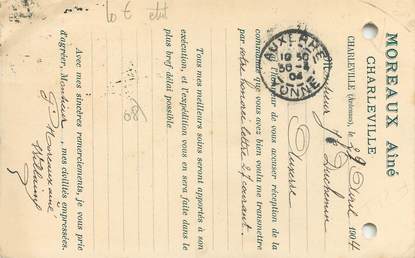 MOREAUX Aîné
CHARLEVILLE
CHARLEVILLE (Ardennes), le 29 Avril 1904
Monsieur
Duchemin
Auxerre
AUXERRE
10 50
30 - 4
04
YONNE
J'ai l'honneur de vous accuser réception de la
commande que vous avez bien voulu me transmettre
par votre honorée lettre 27 courant.
Tous mes meilleurs soins seront apportés à son
exécution, et l'expédition vous en sera faite dans le
plus bref délai possible
Avec mes sincères remerciements, je vous prie
d'agréer, Monsieur, mes civilités empressées.
Moreaux aîné